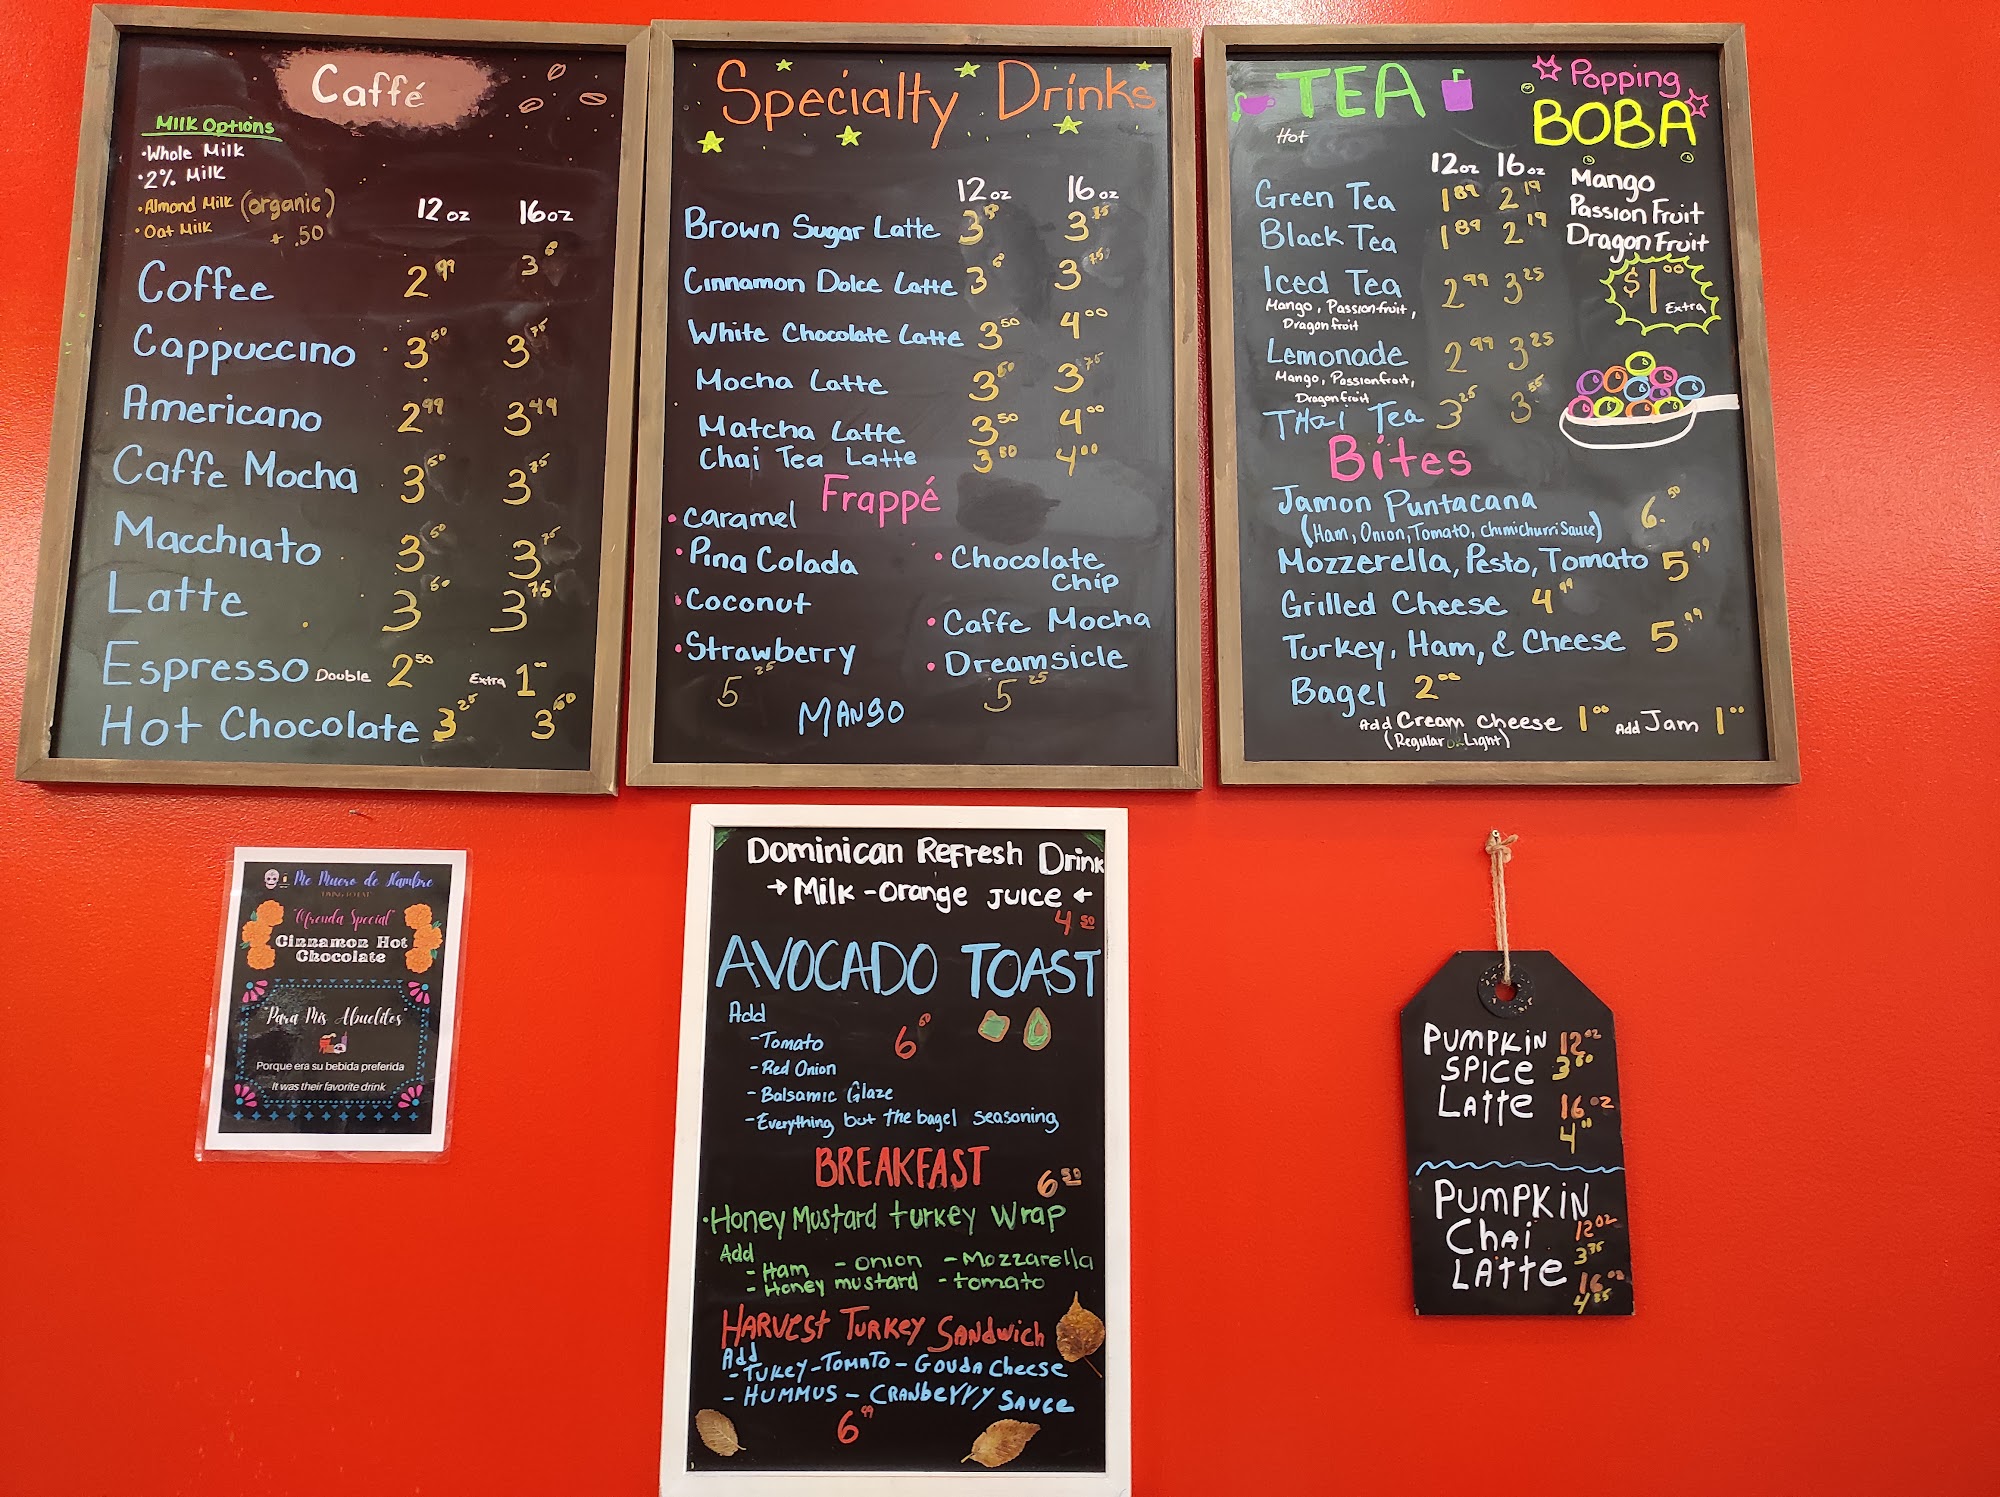 Caffé
Milk Options
•Whole Milk
•2% Milk
•Almond Milk (organic)
•Oat Milk + .50
12 oz 16 oz
Coffee 2 99 3
Cappuccino 3 50 3 75
Americano 2 99 3 49
Caffe Mocha 3 50 3 75
Macchiato 3 50 3 75
Latte 3 50 3 75
Espresso Double 2 50 Extra 1 00
Hot Chocolate 3 25 3 50
Specialty Drinks
12 oz 16 oz
Brown Sugar Latte 3 3 75
Cinnamon Dolce Latte 3 3 75
White Chocolate Latte 3 50 4 00
Mocha Latte 3 50 3 75
Matcha Latte 3 50 4 00
Chai Tea Latte 3 50 4 00
Frappé
• Caramel
• Pina Colada
• Coconut
• Strawberry
5 25
• Chocolate
Chip
• Caffe Mocha
• Dreamsicle
5 25
Mango
TEA
Hot
12 oz 16 oz
Green Tea 1 89 2 19
Black Tea 1 89 2 19
Iced Tea 2 99 3 25
Mango, Passionfruit,
Dragonfruit
Lemonade 2 99 3 25
Mango, Passionfruit,
Dragonfruit
THai Tea 3 25 3 55
Popping
BOBA
Mango
Passion Fruit
Dragon Fruit
$1 00
Extra
Bites
Jamon Puntacana 6. 50
(Ham, Onion, Tomato, Chimichurri Sauce)
Mozzerella, Pesto, Tomato 5 99
Grilled Cheese 4 99
Turkey, Ham, & Cheese 5 99
Bagel 2 00
Add Cream Cheese 1 00 Add Jam 1 00
(Regular or Light)
Me Muero de Hambre
"Ofrenda Special"
Cinnamon Hot
Chocolate
"Para Mis Abuelitos"
Porque era su bebida preferida
It was their favorite drink
Dominican Refresh Drink
→ Milk - Orange Juice ←
4 50
AVOCADO TOAST
Add 6 50
- Tomato
- Red Onion
- Balsamic Glaze
- Everything but the bagel seasoning
BREAKFAST 6 50
• Honey Mustard turkey Wrap
Add
- Ham - onion - Mozzarella
- Honey mustard - tomato
Harvest Turkey Sandwich
Add
- Tukey - Tomato - Gouda Cheese
- Hummus - Cranberry Sauce
6 99
Pumpkin 12 oz
Spice 3 50
Latte 16 oz
4 00
Pumpkin
Chai 12 oz
3 75
Latte 16 oz
4